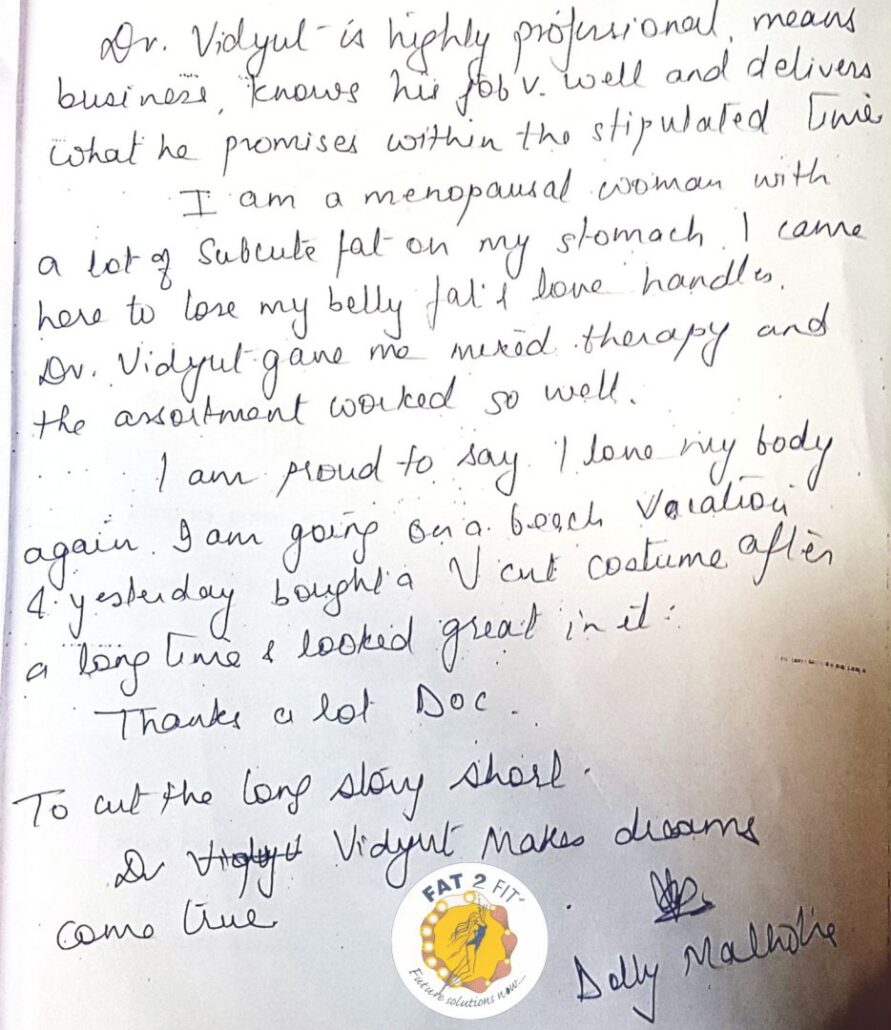 Dr. Vidyut is highly professional, means
business, knows his job v. well and delivers
what he promises within the stipulated time
I am a menopausal woman with
a lot of Subcute fat on my stomach. I came
here to lose my belly fat & love handles.
Dr. Vidyut gave me mixed therapy and
the assortment worked so well.
I am proud to say I love my body
again. I am going on a beach vacation
& yesterday bought a V cut costume after
a long time & looked great in it.
Thanks a lot Doc.
To cut the long story short.
Dr Vidyut Makes dreams
come true
FAT 2 FIT+
Future solutions now...
Dolly Malhotra